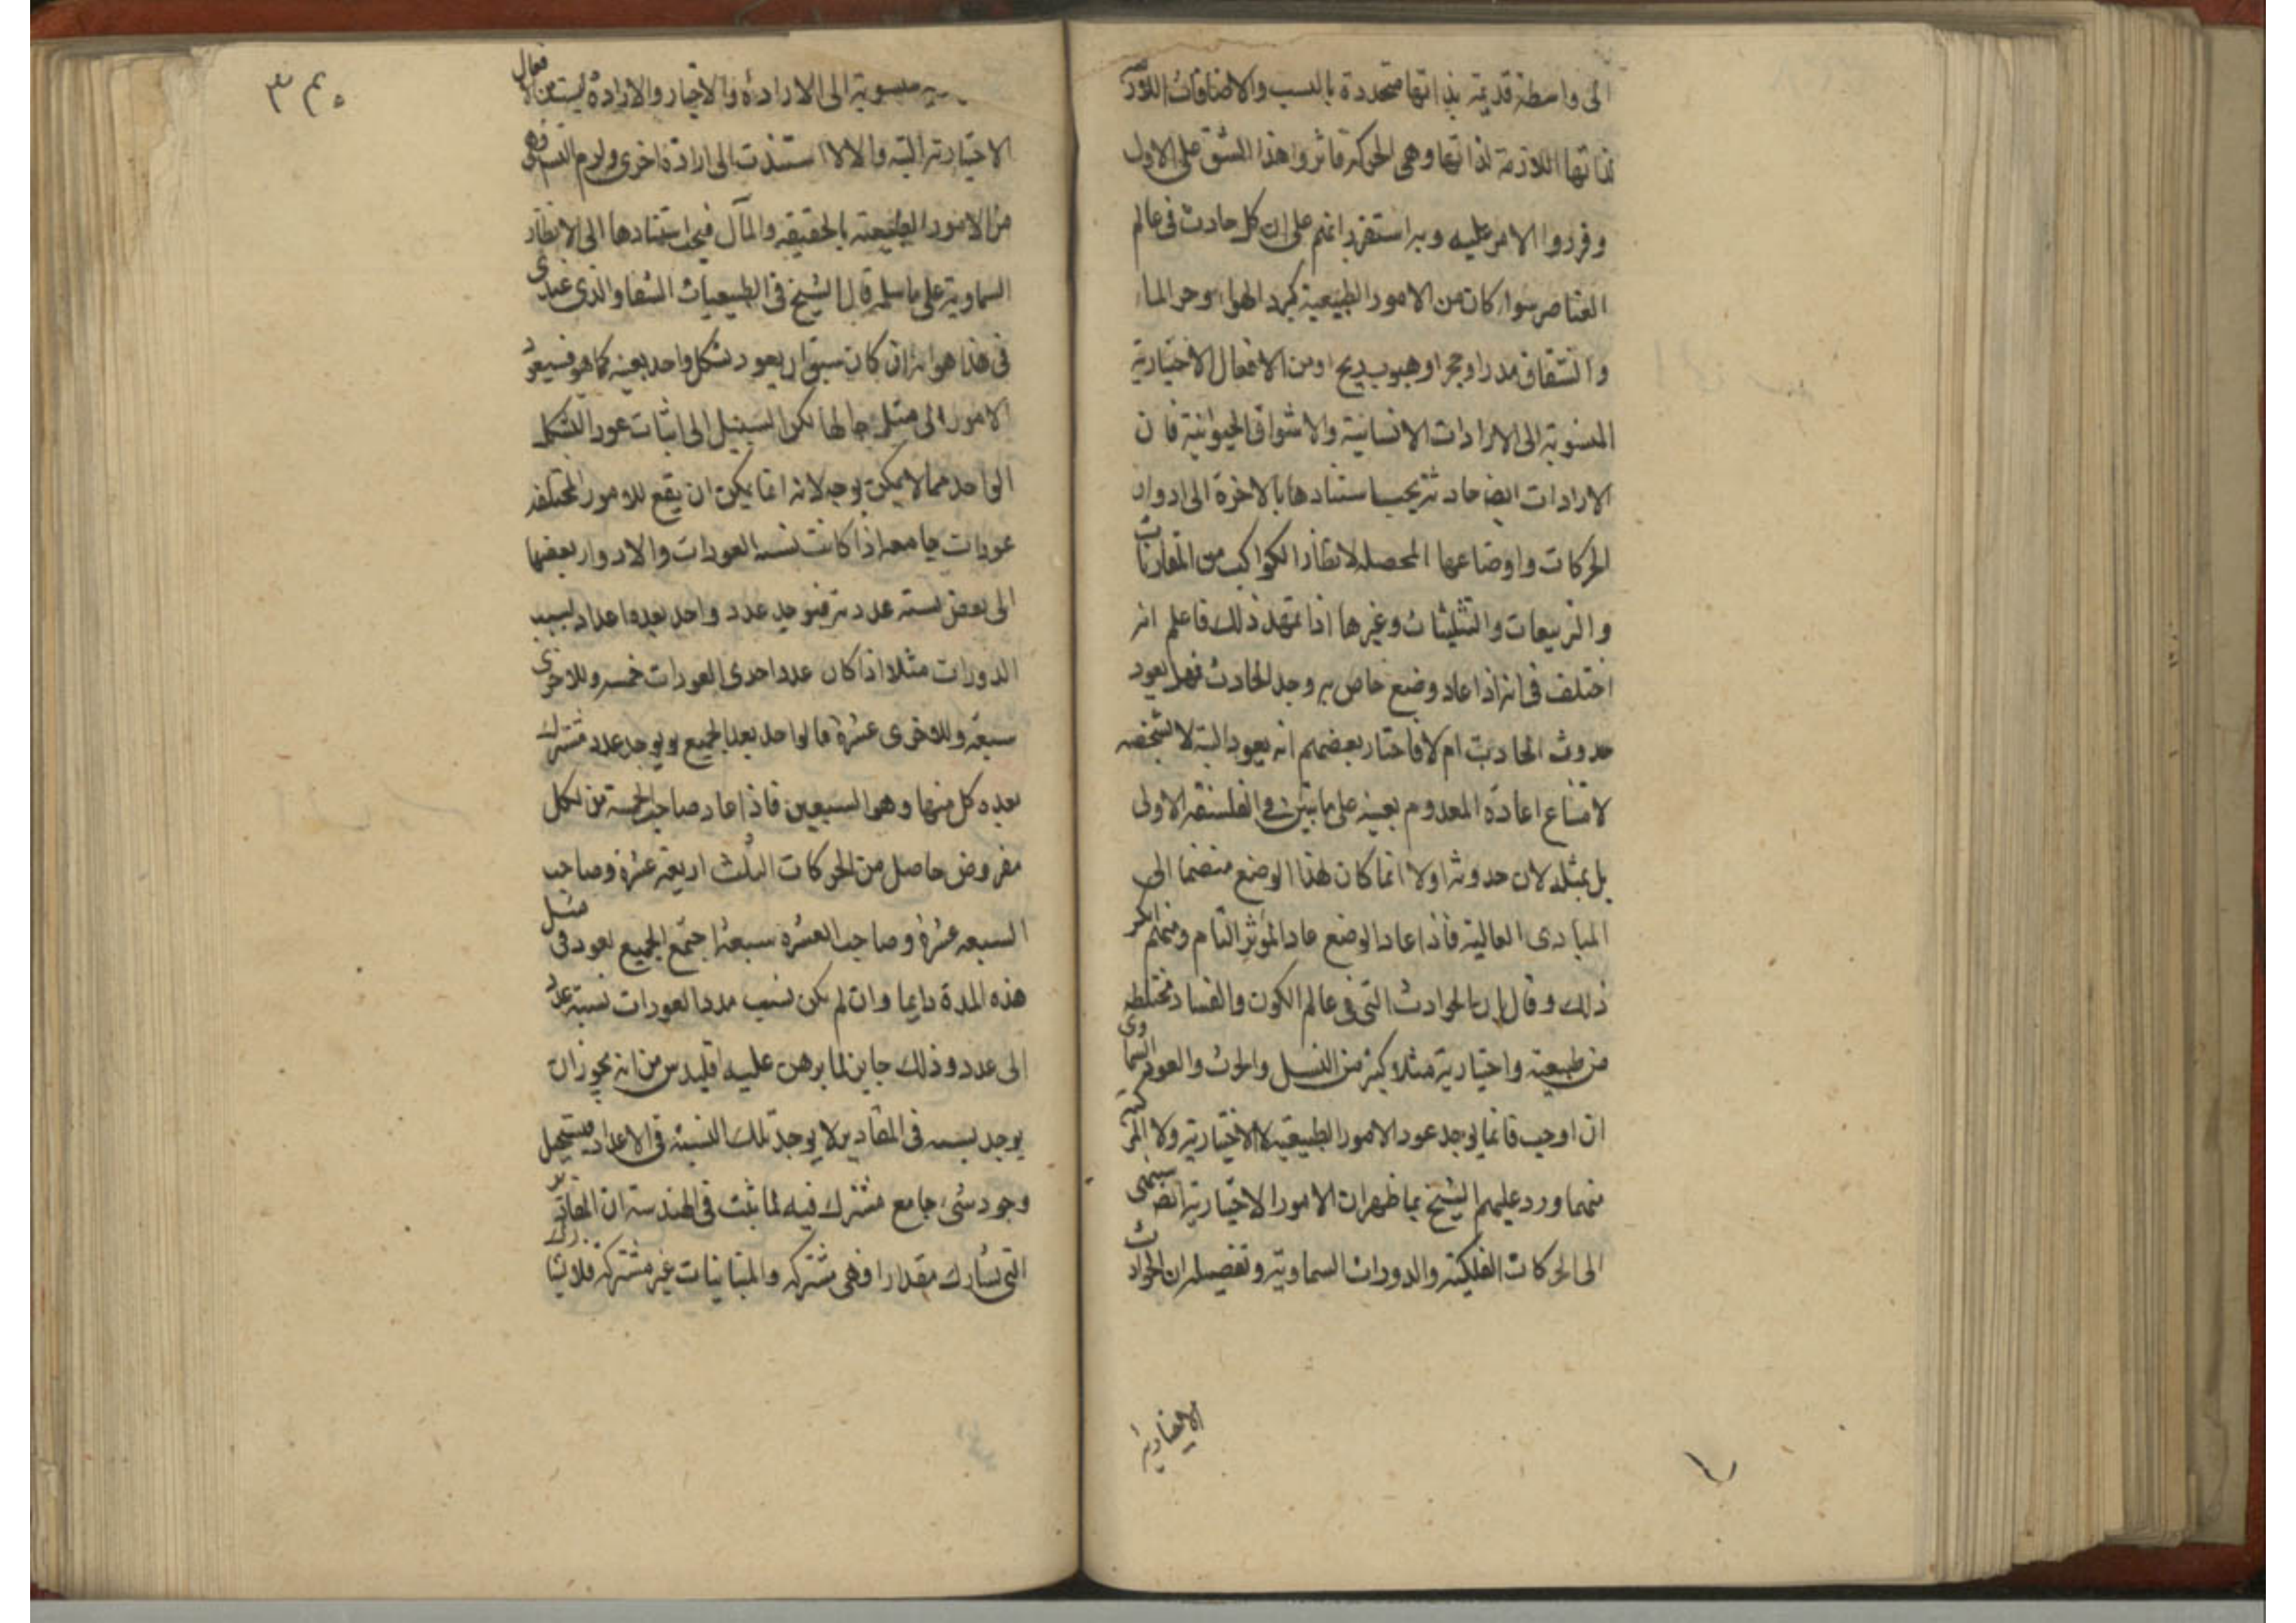 الى واسطة قديمة بذاتها متجددة بالنسب والاضافات اللازمة
لذاتها اللازمة لذاتها وهى الحركة فاثروا هذا الشق على الاول
وقرروا الامر عليه وبه استقر رايهم على ان كل حادث فى عالم
العناصر سواء كان من الامور الطبيعية كبرد الهواء وحر الماء
وانشقاق مدر او حجر او هبوب ريح او من الافعال الاختيارية
المنسوبة الى الارادات الانسانية والاشواق الحيوانية فان
الارادات ايضا حادثة يجب استنادها بالاخرة الى ادوار
الحركات واوضاعها المحصلة لانظار الكواكب من المقارنات
والتربيعات والتثليثات وغيرها اذا تمهد ذلك فاعلم انه
اختلف فى انه اذا عاد وضع خاص به وجد الحادث فهل يعود
حدوث الحادث ام لا فاختار بعضهم انه يعود البتة لا بشخصه
لامتناع اعادة المعدوم بعينه على ما بين فى الفلسفة الاولى
بل بمثله لان حدوثه اولا انما كان لهذا الوضع منضما الى
المبادى العالية فاذا عاد الوضع عاد المؤثر التام ومنهم انكر
ذلك وقال ان الحوادث التى فى عالم الكون والفساد مختلطة
من طبيعية واختيارية مثلا كثير من النسل والحرث والعود السماوى
ان اوجب فانما يوجد عود الامور الطبيعية لا الاختيارية ولا المركبة
منهما ورد عليهم الشيخ بما ظهر ان الامور الاختيارية ايضا ستنتهى
الى الحركات الفلكية والدورات السماوية وتفصيله ان الحوادث
الاختيارية
٣٤٥
منسوبة الى الارادة والاختيار والارادة ليست من الافعال
الاختيارية البتة والا لا استندت الى ارادة اخرى ولزم التس وهى
من الامور الطبيعية بالحقيقة والمآل فيجب استنادها الى الانظار
السماوية على ما سلم قال الشيخ فى الطبيعيات الشفا والذى عندى
فى هذا هو انه ان كان سبق ان يعود شكل واحد بعينه كما هو فسيعود
الامور الى مثل حالها لكن السبيل الى اثبات عود الشكل
الواحد مما لا يمكن بوجه لانه انما يمكن ان يقع للامور المختلفة
عودات جامعة اذا كانت نسبة العودات والادوار بعضها
الى بعض نسبة عددية فيوجد عدد واحد يعده اعداد لسبب
الدورات مثلا اذا كان عدد احدى العودات خمسة وللاخرى
سبعة وللاخرى عشرة فالواحد يعد الجميع ويوجد عدد مشترك
يعده كل منها وهو السبعين فاذا عاد صاحب الخمسة من لكل
مفروض حاصل من الحركات الثلث اربعة عشرة وصاحب
السبعة عشرة وصاحب العشرة سبعة اجتمع الجميع لعود فى مثل
هذه المدة دايما وان لم يكن نسب مدد العودات نسبة عدد
الى عدد وذلك جايز لما برهن عليه اقليدس من انه يجوز ان
يوجد نسبة فى المقادير لا يوجد تلك النسبة فى الاعداد فيستحيل
وجود شئ جامع مشترك فيه لما ثبت فى الهندسة ان المقادير
التى تشارك مقدارا فهى مشتركة والمتباينات غير مشتركة فلا يشا